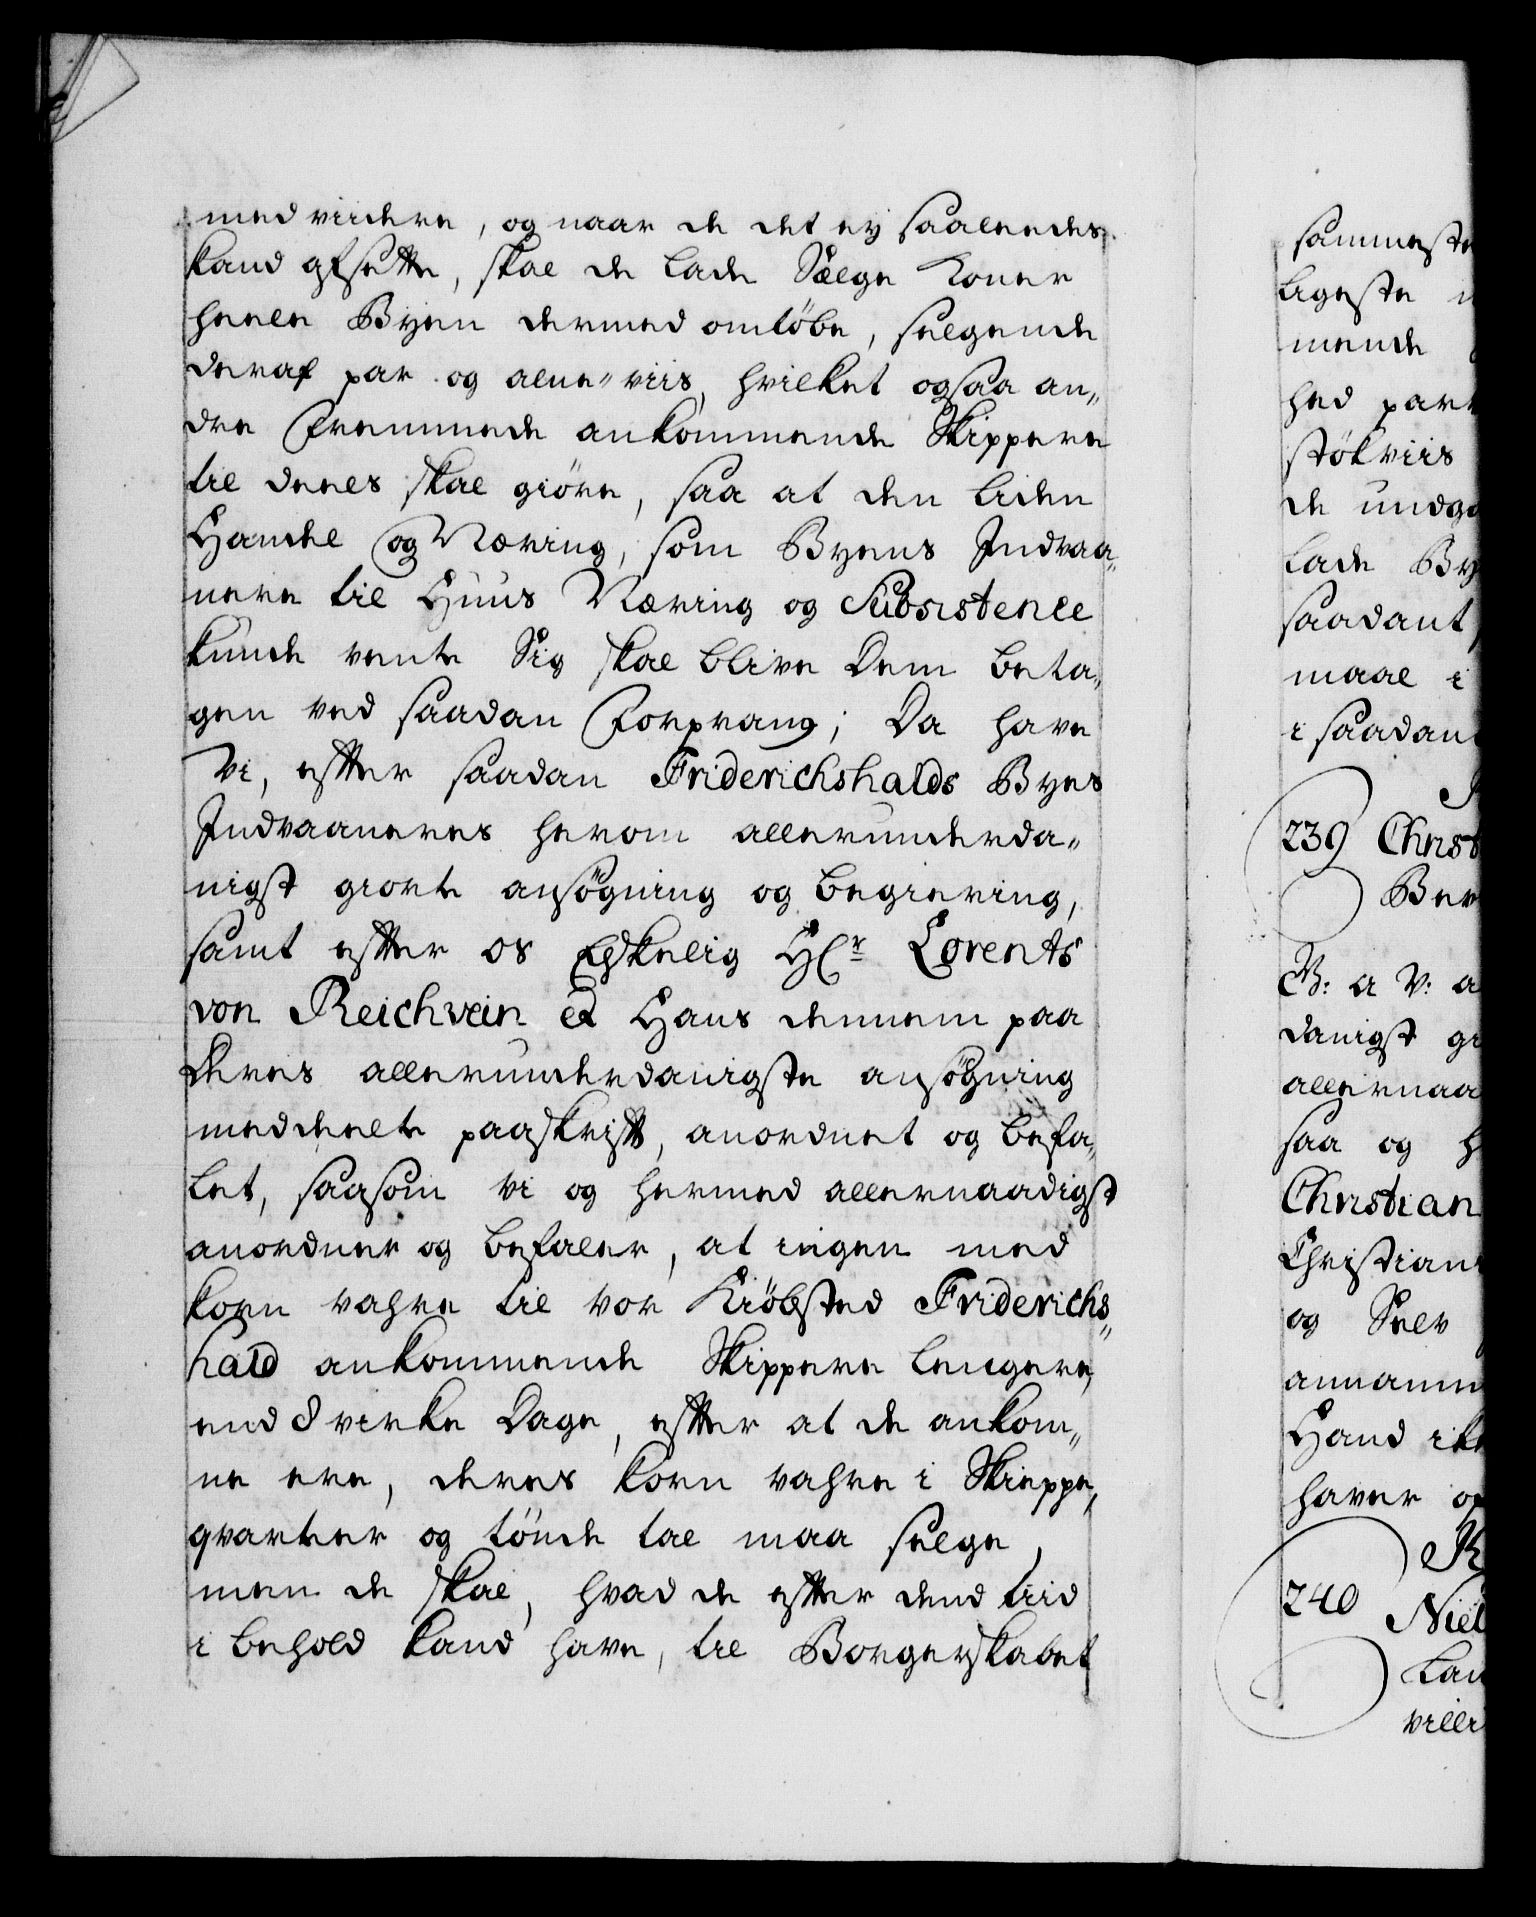 med viidere, og naar de det ey saaleedes
kand afsette, skal de lade Sælge Koner
heele Byen dermed omløbe, selgende
deraf par og alne-viis, hvilket ogsaa an„
dre fremmede ankommende Skippere
til deels skal giöre, saa at den liden
Handel og Næring, som Byens Indvaa„
nere til Huus Næring og Subsistence
kunde vente Sig skal blive Dem beta„
gen ved saadan Forprang; Da have
Vi, efter saadan Friderichshalds Byes
Indvaaneres herom allerunderda„
nigst giorte ansögning og begiering,
samt efter os Elskelig Hr Lorents
von Reichvein Hans dennem paa
deres allerunderdanigste ansögning
meddeelte paaskrift, anordnet og befa„
let, saasom vi og hermed allernaadigst
anordner og befaler, at ingen med
korn vahre til vor Kiöbsted Friderichs„
hald ankommende Skippere lengere,
end 8 virke Dage, efter at de ankom„
ne ere, deres korn vahre i Skieppe,
qvarter og tönde tal maa selge,
men de skal, hvad de efter dend tiid
i behold kand have, til Borgerskabet
sammeste
ligeste
mende
hed
stökviis
de undga
lade By
saadant
maal i
i saadan
239 Christ
Ber
V: a V: a
danigst gi
allernaa
saa og h
Christian
Christian
og Selv
annamm
Hand ik
haver op
240 Niel
Lau
villi